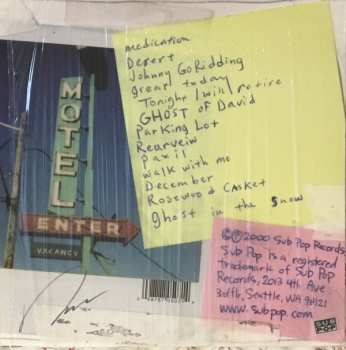 medication
Desert
Johnny Go Ridding
great today
Tonight I will retire
GHOST of David
Parking Lot
Rearveiw
paxil
walk with me
December
Rosewood Casket
ghost in the snow
MOTEL
ENTER
VACANCY
℗© 2000 Sub Pop Records,
Sub Pop is a registered
trademark of Sub Pop
Records, 2013 4th Ave
3rd fl, Seattle, WA 98121
www.subpop.com
SUB
POP